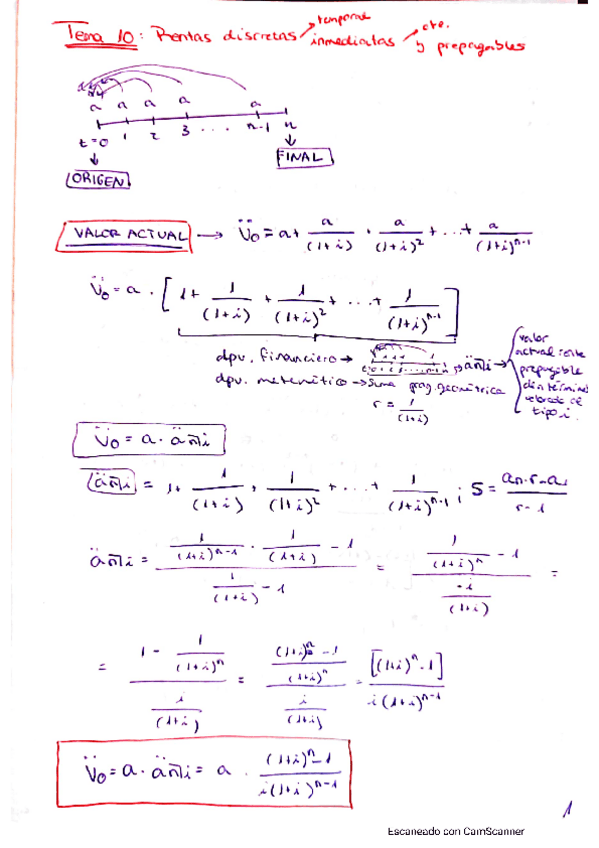 temporal cte.
Tema 10: Rentas discretas inmediatas y prepagables
a a a a a
t=0 1 2 3 ... n-1 n
ORIGEN
FINAL
VALOR ACTUAL → V̈₀ = a + a/(1+i) + a/(1+i)² + ... + a/(1+i)ⁿ⁻¹
V̈₀ = a · [1 + 1/(1+i) + 1/(1+i)² + ... + 1/(1+i)ⁿ⁻¹]
dpv. financiero → än̅|i → valor actual renta prepagable de n términos valorada al tipo i.
dpv. matemático → Suma prog. geométrica
r = 1/(1+i)
V̈₀ = a · än̅|i
än̅|i = 1 + 1/(1+i) + 1/(1+i)² + ... + 1/(1+i)ⁿ⁻¹ ; S = (aₙ·r - a₁)/(r - 1)
än̅|i = (1/(1+i)ⁿ⁻¹ · 1/(1+i) - 1)/(1/(1+i) - 1) = (1/(1+i)ⁿ - 1)/(-i/(1+i)) =
= (1 - 1/(1+i)ⁿ)/(i/(1+i)) = (((1+i)ⁿ - 1)/(1+i)ⁿ)/(i/(1+i)) = [(1+i)ⁿ - 1]/(i(1+i)ⁿ⁻¹)
V̈₀ = a · än̅|i = a · ((1+i)ⁿ - 1)/(i(1+i)ⁿ⁻¹)
1
Escaneado con CamScanner